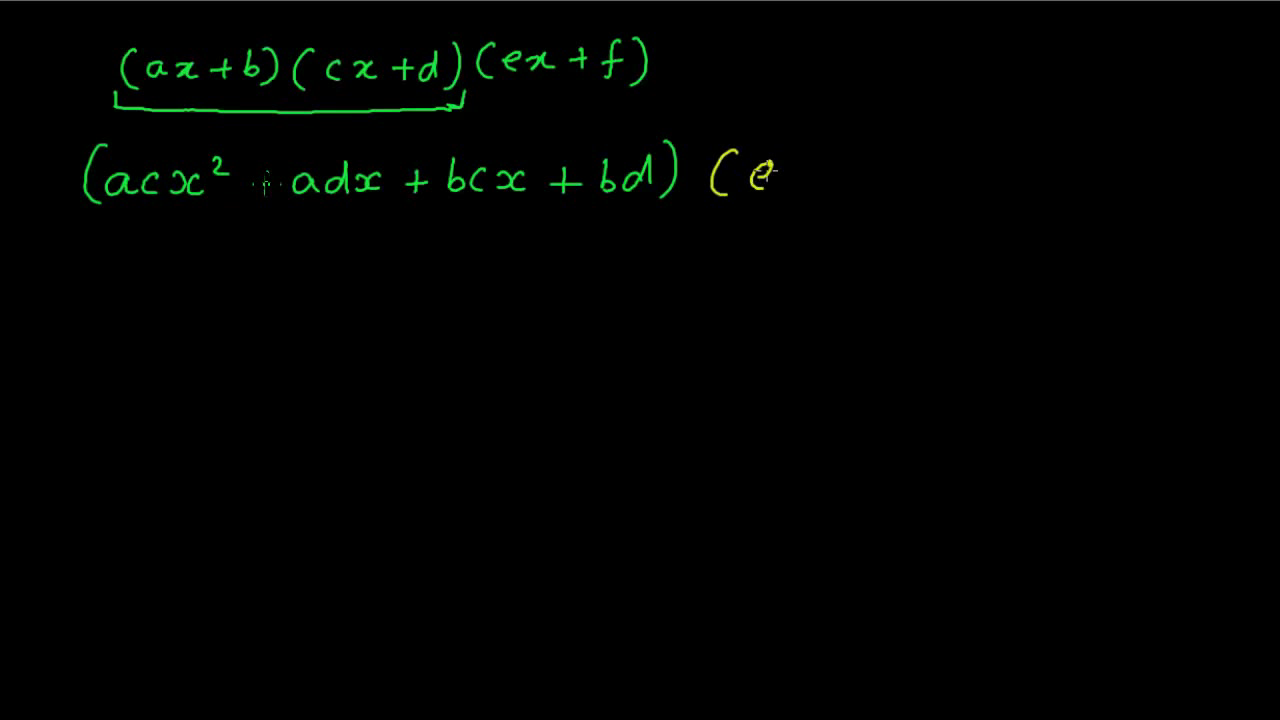 (ax+b)(cx+d)(ex+f)
(acx² + adx + bcx + bd) (e